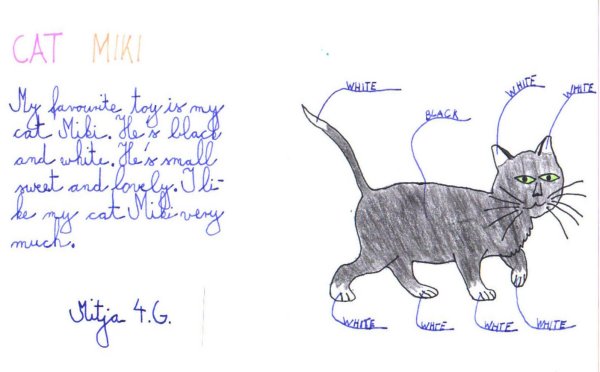 CAT MIKI
My favourite toy is my
cat Miki. He's black
and white. He's small
sweet and lovely. I li-
ke my cat Miki very
much.
Mitja 4.G.
WHITE
BLACK
WHITE
WHITE
WHITE
WHITE
WHITE
WHITE